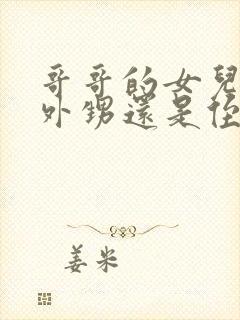 哥哥的女兒
外甥還是侄
姜米